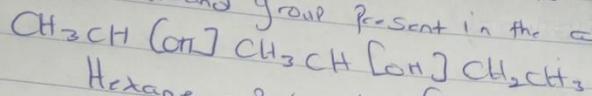 Group Present in the
CH3CH [OH] CH3CH [OH] CH2CH3
Hexane